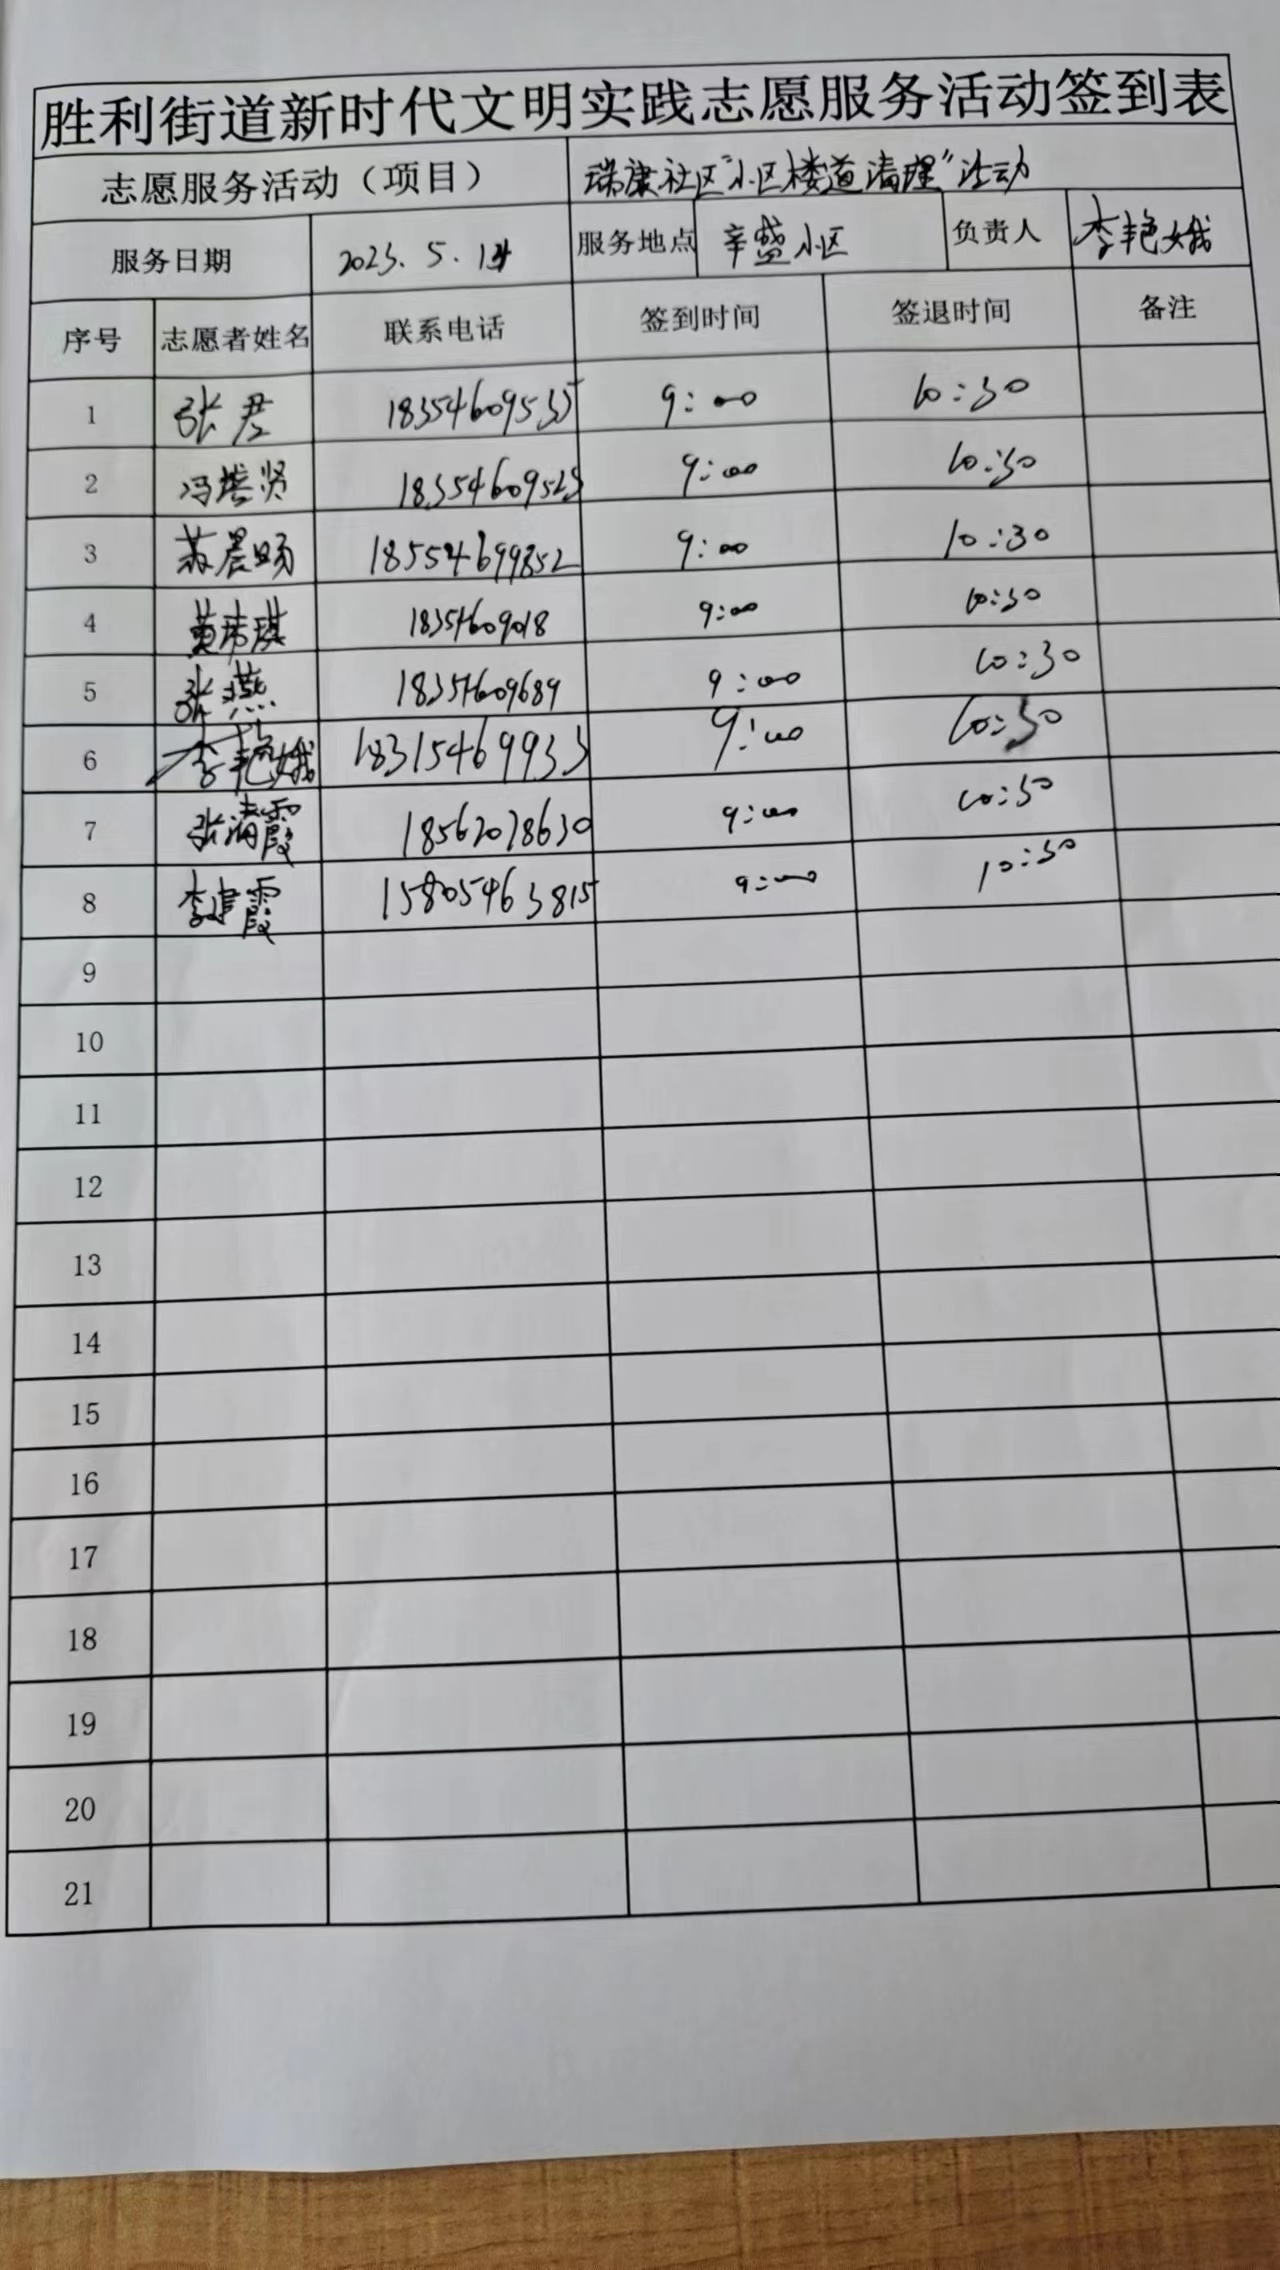 胜利街道新时代文明实践志愿服务活动签到表
志愿服务活动（项目） 瑞康社区“小区楼道清理”活动
服务日期 2023.5.14 服务地点 辛盛小区 负责人 李艳娥
序号 志愿者姓名 联系电话 签到时间 签退时间 备注
1 张君 18354609535 9:00 10:30
2 冯其贤 18354609523 9:00 10:30
3 苏晨旸 18554699852 9:00 10:30
4 黄 琪 18354609018 9:00 10:30
5 张燕 18354609689 9:00 10:30
6 李艳娥 18315469933 9:00 10:30
7 张清霞 18562028630 9:00 10:30
8 李建霞 15805463815 9:00 10:30
9
10
11
12
13
14
15
16
17
18
19
20
21